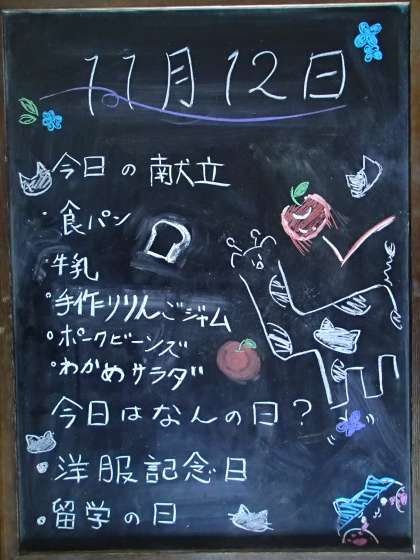 11月12日
今日の献立
・食パン
・牛乳
・手作りりんごジャム
・ポークビーンズ
・わかめサラダ
今日はなんの日?
・洋服記念日
・留学の日